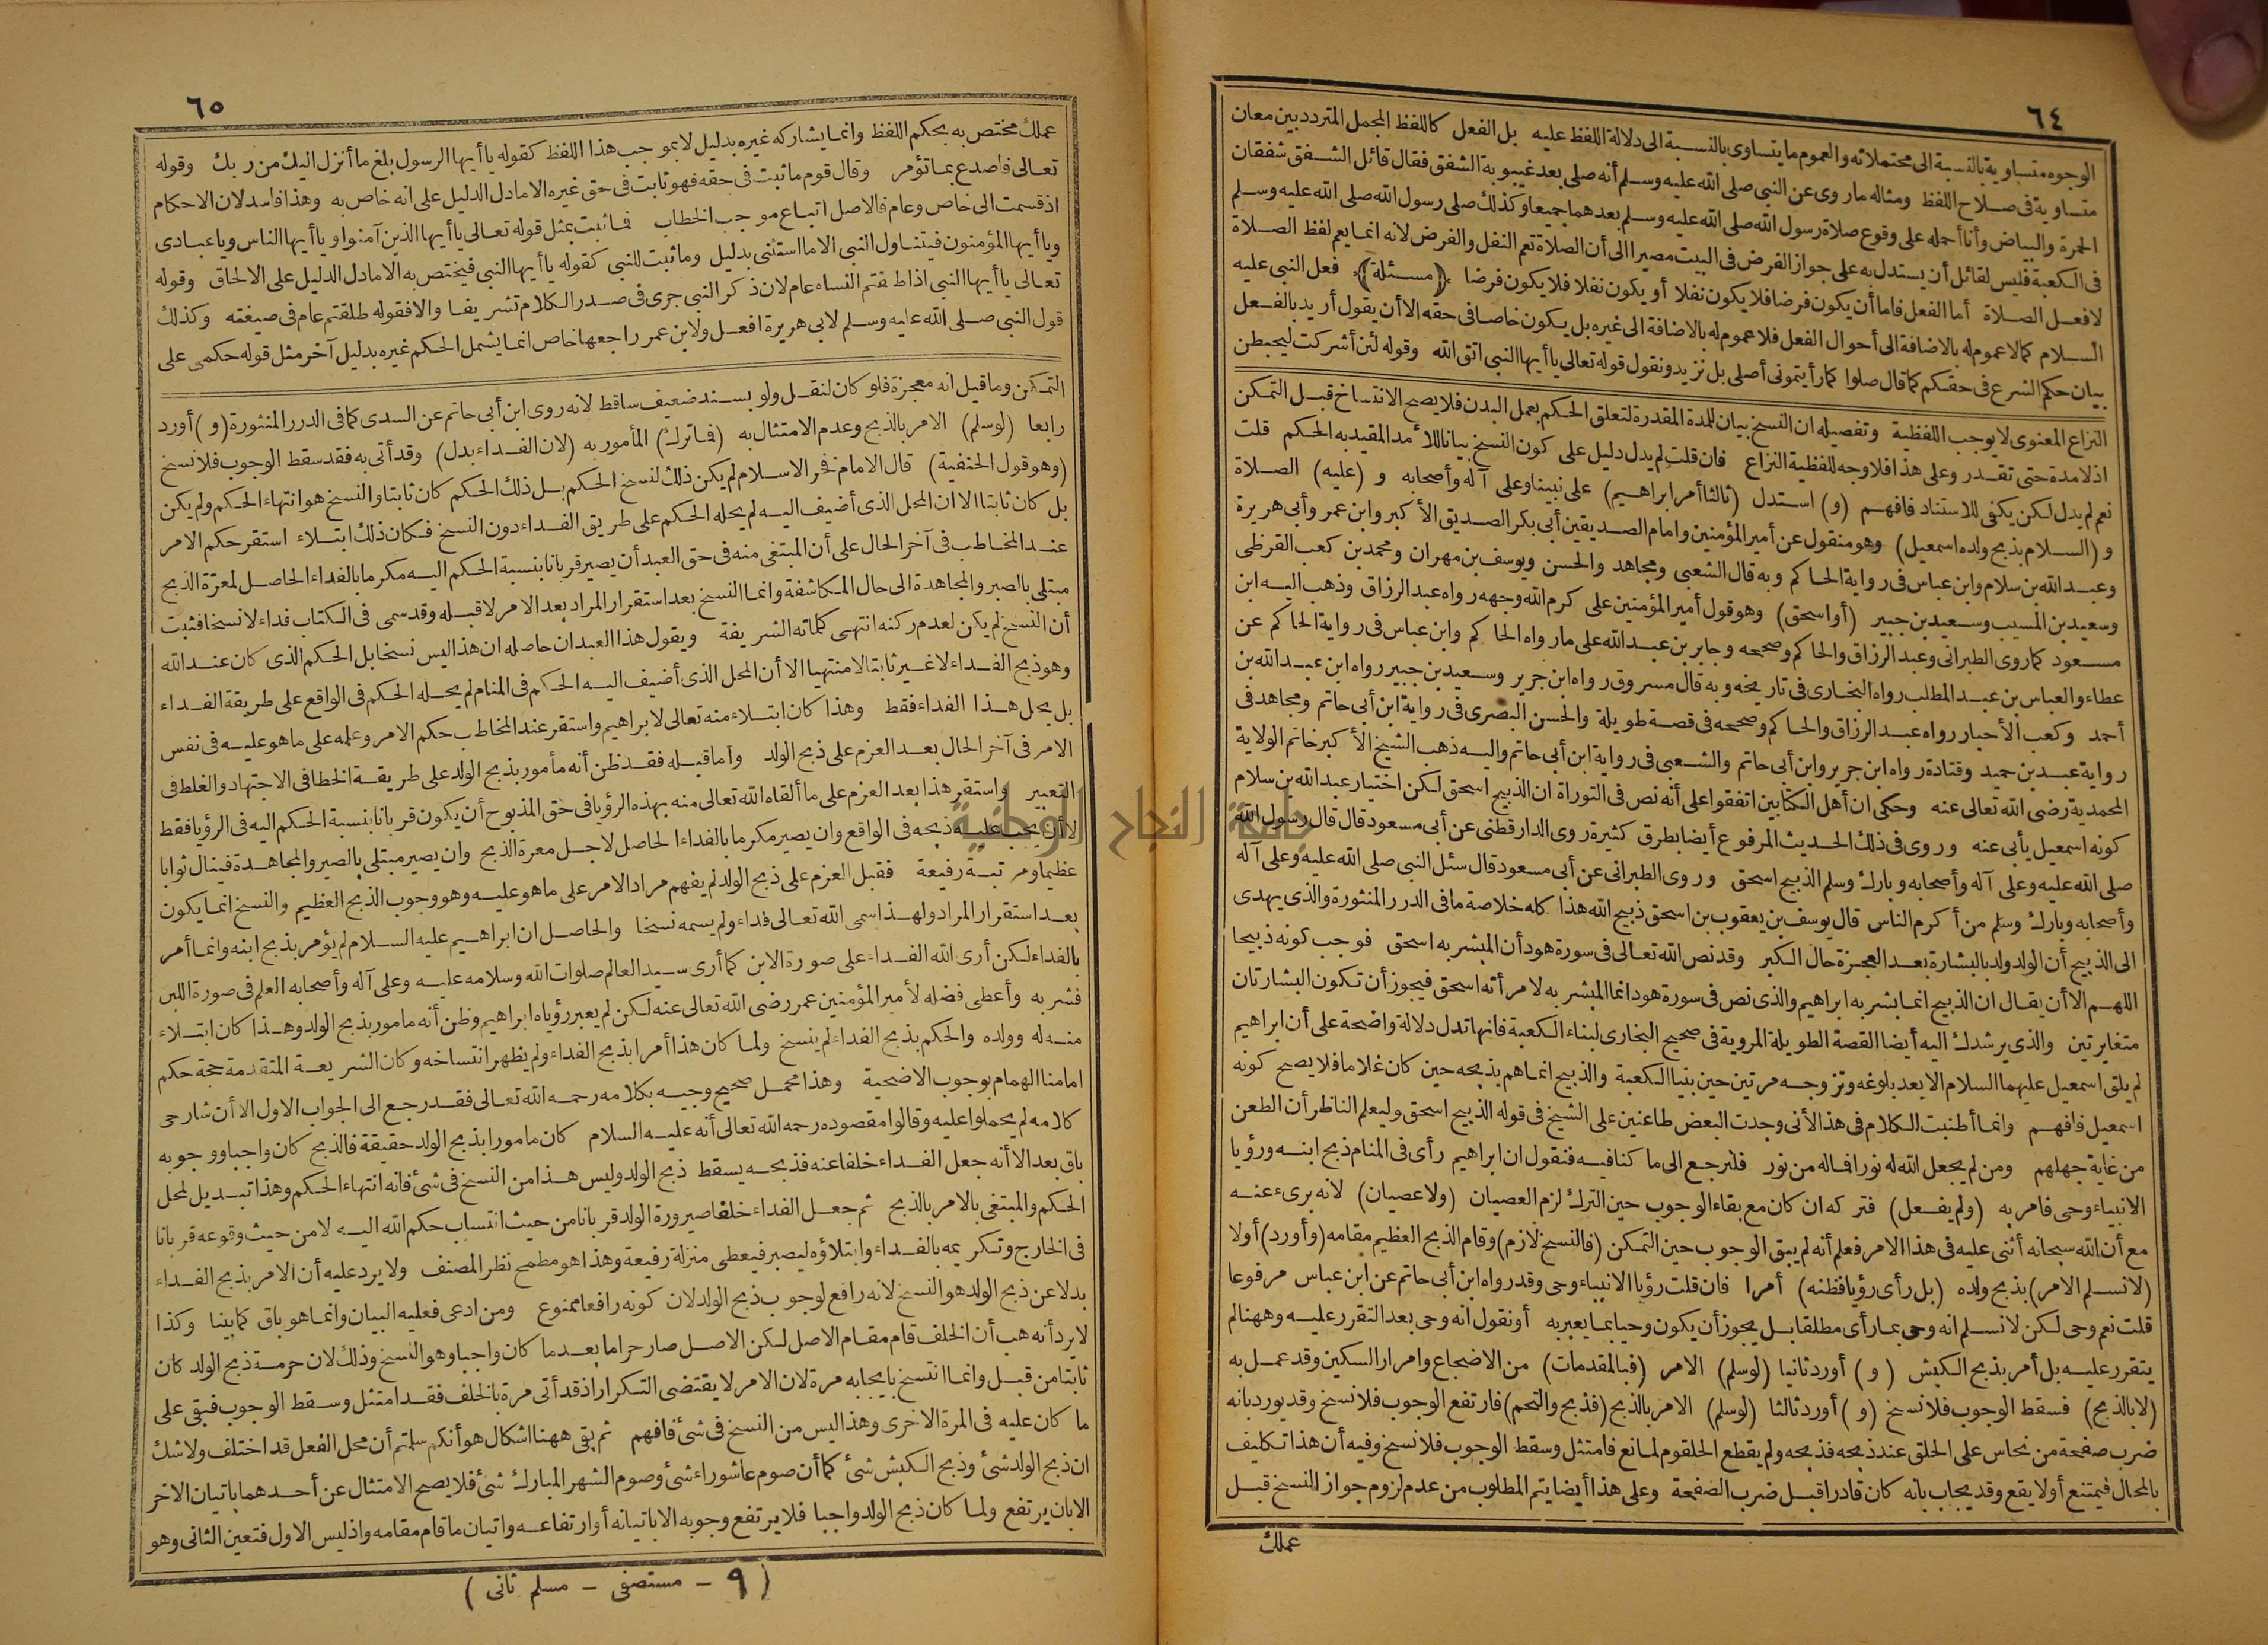 ٦٤
الوجوه متساوية بالنسبة الى محتملاته والعموم ما يتساوى بالنسبة الى دلالة اللفظ عليه بل الفعل كاللفظ المجمل المتردد بين معان
متساوية فى صلاح اللفظ ومثاله ما روى عن النبى صلى الله عليه وسلم أنه صلى بعد غيبوبة الشفق فقال قائل الشفق شفقان
الحمرة والبياض وأنا أحمله على وقوع صلاة رسول الله صلى الله عليه وسلم بعدهما جميعا وكذلك صلى رسول الله صلى الله عليه وسلم
فى الكعبة فليس لقائل أن يستدل به على جواز الفرض فى البيت مصيرا الى أن الصلاة تعم النفل والفرض لانه انما يعم لفظ الصلاة
لا فعل الصلاة أما الفعل فاما أن يكون فرضا فلا يكون نفلا أو يكون نفلا فلا يكون فرضا ﴿مسئلة﴾ فعل النبى عليه
السلام كما لا عموم له بالاضافة الى أحوال الفعل فلا عموم له بالاضافة الى غيره بل يكون خاصا فى حقه الا أن يقول أريد بالفعل
بيان حكم الشرع فى حقكم كما قال صلوا كما رأيتمونى أصلى بل نزيد ونقول قوله تعالى يا أيها النبى اتق الله وقوله لئن أشركت ليحبطن
النزاع المعنوى لا يوجب اللفظية وتفصيله ان النسخ بيان للمدة المقدرة لتعلق الحكم بعمل البدن فلا يصح الانتساخ قبل التمكن
اذ لا مدة حتى تقدر وعلى هذا فلا وجه للفظية النزاع فان قلت لم يدل دليل على كون النسخ بيانا للأمد المقيد به الحكم قلت
نعم لم يدل لكن يكفى للاستناد فافهم (و) استدل (ثالثا أمر ابراهيم) على نبينا وعلى آله وأصحابه و (عليه) الصلاة
و (السلام بذبح ولده اسمعيل) وهو منقول عن أمير المؤمنين وامام الصديقين أبى بكر الصديق الأكبر وابن عمر وأبى هريرة
وعبد الله بن سلام وابن عباس فى رواية الحاكم وبه قال الشعبى ومجاهد والحسن ويوسف بن مهران ومحمد بن كعب القرظى
وسعيد بن المسيب وسعيد بن جبير (أو اسحق) وهو قول أمير المؤمنين على كرم الله وجهه رواه عبد الرزاق وذهب اليه ابن
مسعود كما روى الطبرانى وعبد الرزاق والحاكم وصححه وجابر بن عبد الله على ما رواه الحاكم وابن عباس فى رواية الحاكم عن
عطاء والعباس بن عبد المطلب رواه البخارى فى تاريخه وبه قال مسروق رواه ابن جرير وسعيد بن جبير رواه ابن عبد الله بن
أحمد وكعب الأحبار رواه عبد الرزاق والحاكم وصححه فى قصة طويلة والحسن البصرى فى رواية ابن أبى حاتم ومجاهد فى
رواية عبد بن حميد وقتادة رواه ابن جرير وابن أبى حاتم والشعبى فى رواية ابن أبى حاتم واليه ذهب الشيخ الأكبر خاتم الولاية
المحمدية رضى الله تعالى عنه وحكى ان أهل الكتابين اتفقوا على أنه نص فى التوراة ان الذبيح اسحق لكن اختيار عبد الله بن سلام
كونه اسمعيل يأبى عنه وروى فى ذلك الحديث المرفوع أيضا بطرق كثيرة روى الدارقطنى عن أبى مسعود قال قال رسول الله
صلى الله عليه وعلى آله وأصحابه وبارك وسلم الذبيح اسحق وروى الطبرانى عن أبى مسعود قال سئل النبى صلى الله عليه وعلى آله
وأصحابه وبارك وسلم من أكرم الناس قال يوسف بن يعقوب بن اسحق ذبيح الله هذا كله خلاصة ما فى الدرر المنثورة والذى يهدى
الى الذبيح أن الولد ولد بالبشارة بعد العجزة حال الكبر وقد نص الله تعالى فى سورة هود أن المبشر به اسحق فوجب كونه ذبيحا
اللهم الا أن يقال ان الذبيح انما بشر به ابراهيم والذى نص فى سورة هود انما المبشر به لامرأته اسحق فيجوز أن تكون البشارتان
متغايرتين والذى يرشدك اليه أيضا القصة الطويلة المروية فى صحيح البخارى لبناء الكعبة فانها تدل دلالة واضحة على أن ابراهيم
لم يلق اسمعيل عليهما السلام الا بعد بلوغه وتزوجه مرتين حين بنيا الكعبة والذبيح انما هم بذبحه حين كان غلاما فلا يصح كونه
اسمعيل فافهم وانما أطنبت الكلام فى هذا لأنى وجدت البعض طاعنين على الشيخ فى قوله الذبيح اسحق وليعلم الناظر أن الطعن
من غاية جهلهم ومن لم يجعل الله له نورا فماله من نور فلنرجع الى ما كنا فيه فنقول ان ابراهيم رأى فى المنام ذبح ابنه ورؤيا
الانبياء وحى فامر به (ولم يفعل) فتركه ان كان مع بقاء الوجوب حين الترك لزم العصيان (ولا عصيان) لانه برىء عنه
مع أن الله سبحانه أثنى عليه فى هذا الامر فعلم أنه لم يبق الوجوب حين التمكن (فالنسخ لازم) وقام الذبح العظيم مقامه (وأورد) أولا
(لا نسلم الامر) بذبح ولده (بل رأى رؤيا فظنه) أمرا فان قلت رؤيا الانبياء وحى وقد رواه ابن أبى حاتم عن ابن عباس مرفوعا
قلت نعم وحى لكن لا نسلم انه وحى بما رأى مطلقا بل يجوز أن يكون وحيا بما يعبر به أو نقول انه وحى بعد التقرر عليه وههنا لم
يتقرر عليه بل أمر بذبح الكبش (و) أورد ثانيا (لو سلم) الامر (فبالمقدمات) من الاضجاع وامرار السكين وقد عمل به
(لا بالذبح) فسقط الوجوب فلا نسخ (و) أورد ثالثا (لو سلم) الامر بالذبح (فذبح والتحم) فارتفع الوجوب فلا نسخ وقد يورد بأنه
ضرب صفحة من نحاس على الحلق عند ذبحه فذبحه ولم يقطع الحلقوم لمانع فامتثل وسقط الوجوب فلا نسخ وفيه أن هذا تكليف
بالمحال فيمتنع أو لا يقع وقد يجاب بانه كان قادرا قبل ضرب الصفحة وعلى هذا أيضا يتم المطلوب من عدم لزوم جواز النسخ قبل
عملك
٦٥
عملك مختص به بحكم اللفظ وانما يشاركه غيره بدليل لا بموجب هذا اللفظ كقوله يا أيها الرسول بلغ ما أنزل اليك من ربك وقوله
تعالى فاصدع بما تؤمر وقال قوم ما ثبت فى حقه فهو ثابت فى حق غيره الا ما دل الدليل على انه خاص به وهذا فاسد لان الاحكام
اذ قسمت الى خاص وعام فالاصل اتباع موجب الخطاب فما ثبت بمثل قوله تعالى يا أيها الذين آمنوا ويا أيها الناس ويا عبادى
ويا أيها المؤمنون فيتناول النبى الا ما استثنى بدليل وما ثبت للنبى كقوله يا أيها النبى فيختص به الا ما دل الدليل على الالحاق وقوله
تعالى يا أيها النبى اذا طلقتم النساء عام لان ذكر النبى جرى فى صدر الكلام تشريفا والا فقوله طلقتم عام فى صيغته وكذلك
قول النبى صلى الله عليه وسلم لابى هريرة افعل ولابن عمر راجعها خاص انما يشمل الحكم غيره بدليل آخر مثل قوله حكمى على
التمكن وما قيل انه معجزة فلو كان لنقل ولو بسند ضعيف ساقط لانه روى ابن أبى حاتم عن السدى كما فى الدرر المنثورة (و) أورد
رابعا (لو سلم) الامر بالذبح وعدم الامتثال به (فما ترك) المأمور به (لان الفداء بدل) وقد أتى به فقد سقط الوجوب فلا نسخ
(وهو قول الحنفية) قال الامام فخر الاسلام لم يكن ذلك لنسخ الحكم بل ذلك الحكم كان ثابتا والنسخ هو انتهاء الحكم ولم يكن
بل كان ثابتا الا ان المحل الذى أضيف اليه لم يحله الحكم على طريق الفداء دون النسخ فكان ذلك ابتلاء استقر حكم الامر
عند المخاطب فى آخر الحال على أن المبتغى منه فى حق العبد أن يصير قربانا بنسبة الحكم اليه مكرما بالفداء الحاصل لمعرة الذبح
مبتلى بالصبر والمجاهدة الى حال المكاشفة وانما النسخ بعد استقرار المراد بعد الامر لا قبله وقد سمى فى الكتاب فداء لا نسخا فثبت
أن النسخ لم يكن لعدم ركنه انتهى كلماته الشريفة ويقول هذا العبد ان حاصله ان هذا ليس نسخا بل الحكم الذى كان عند الله
وهو ذبح الفداء لا غير ثابتا لا منتهيا الا أن المحل الذى أضيف اليه الحكم فى المنام لم يحله الحكم فى الواقع على طريقة الفداء
بل يحل هذا الفداء فقط وهذا كان ابتلاء منه تعالى لابراهيم واستقر عند المخاطب حكم الامر وعلمه على ما هو عليه فى نفس
الامر فى آخر الحال بعد العزم على ذبح الولد وأما قبله فقد ظن أنه مأمور بذبح الولد على طريقة الخطا فى الاجتهاد والغلط فى
التعبير واستقر هذا بعد العزم على ما ألقاه الله تعالى منه بهذه الرؤيا فى حق المذبوح أن يكون قربانا بنسبة الحكم اليه فى الرؤيا فقط
لا أن يجب عليه ذبحه فى الواقع وان يصير مكرما بالفداء الحاصل لاجل معرة الذبح وان يصير مبتلى بالصبر والمجاهدة فينال ثوابا
عظيما ومرتبة رفيعة فقبل العزم على ذبح الولد لم يفهم مراد الامر على ما هو عليه وهو وجوب الذبح العظيم والنسخ انما يكون
بعد استقرار المراد ولهذا سمى الله تعالى فداء ولم يسمه نسخا والحاصل ان ابراهيم عليه السلام لم يؤمر بذبح ابنه وانما أمر
بالفداء لكن أرى الله الفداء على صورة الابن كما أرى سيد العالم صلوات الله وسلامه عليه وعلى آله وأصحابه العلم فى صورة اللبن
فشربه وأعطى فضله لأمير المؤمنين عمر رضى الله تعالى عنه لكن لم يعبر رؤياه ابراهيم وظن أنه مامور بذبح الولد وهذا كان ابتلاء
منه له وولده والحكم بذبح الفداء لم ينسخ ولما كان هذا أمرا بذبح الفداء ولم يظهر انتساخه وكان الشريعة المتقدمة حجة حكم
امامنا الهمام بوجوب الاضحية وهذا محمل صحيح وجيه بكلامه رحمه الله تعالى فقد رجع الى الجواب الاول الا أن شارحى
كلامه لم يحملوا عليه وقالوا مقصوده رحمه الله تعالى أنه عليه السلام كان مامورا بذبح الولد حقيقة فالذبح كان واجبا ووجوبه
باق بعد الا أنه جعل الفداء خلفا عنه فذبحه يسقط ذبح الولد وليس هذا من النسخ فى شئ فانه انتهاء الحكم وهذا تبديل لمحل
الحكم والمبتغى بالامر بالذبح ثم جعل الفداء خلفا صيرورة الولد قربانا من حيث انتساب حكم الله اليه لا من حيث وقوعه قربانا
فى الخارج وتكريمه بالفداء وابتلاؤه ليصبر فيعطى منزلة رفيعة وهذا هو مطمح نظر المصنف ولا يرد عليه أن الامر بذبح الفداء
بدلا عن ذبح الولد هو النسخ لانه رافع لوجوب ذبح الولد لان كونه رافعا ممنوع ومن ادعى فعليه البيان وانما هو باق كما بينا وكذا
لا يرد أنه هب أن الخلف قام مقام الاصل لكن الاصل صار حراما بعد ما كان واجبا وهو النسخ وذلك لان حرمة ذبح الولد كان
ثابتا من قبل وانما انتسخ بايجابه مرة لان الامر لا يقتضى التكرار اذ قد أتى مرة بالخلف فقد امتثل وسقط الوجوب فبقى على
ما كان عليه فى المرة الاخرى وهذا ليس من النسخ فى شئ فافهم ثم بقى ههنا اشكال هو أنكم سلمتم أن محل الفعل قد اختلف ولا شك
ان ذبح الولد شئ وذبح الكبش شئ كما أن صوم عاشوراء شئ وصوم الشهر المبارك شئ فلا يصح الامتثال عن أحدهما باتيان الاخر
الا بان يرتفع ولما كان ذبح الولد واجبا فلا يرتفع وجوبه الا باتيانه أو ارتفاعه واتيان ما قام مقامه واذ ليس الاول فتعين الثانى وهو
(٩ - مستصفى - مسلم ثانى)
جامعة النجاح الوطنية